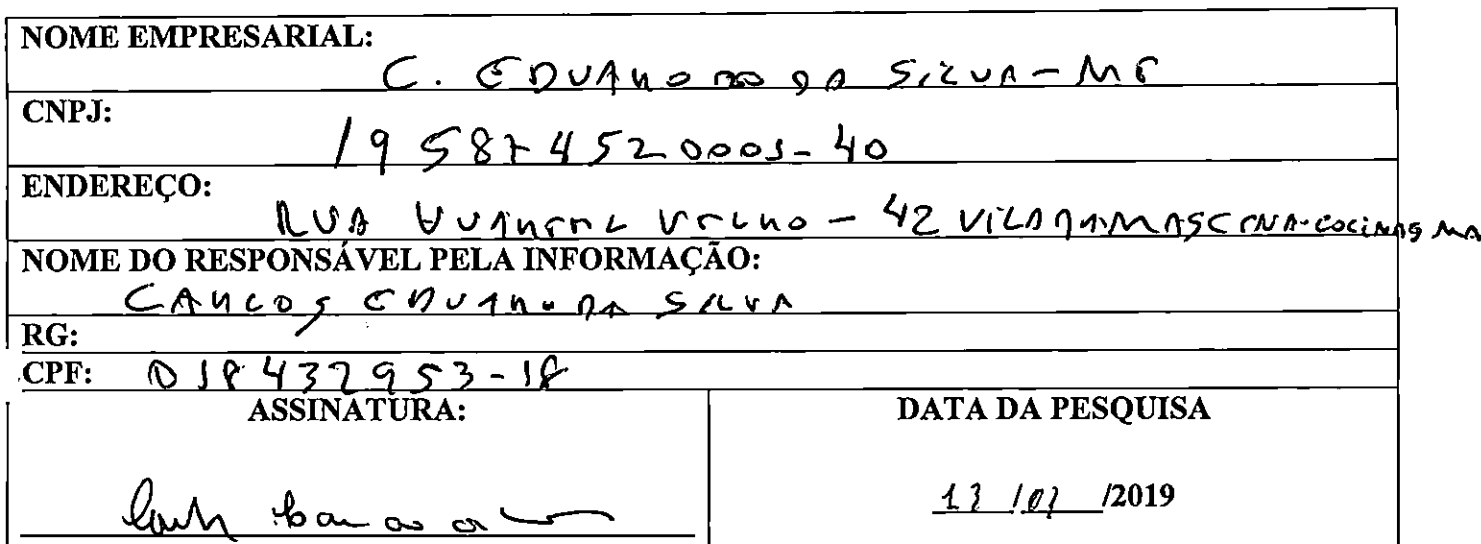 NOME EMPRESARIAL:
C. EDUARDO DA SILVA - ME
CNPJ:
19587452 0001-40
ENDEREÇO:
RUA VELHO - 42 VILA COLINAS MA
NOME DO RESPONSÁVEL PELA INFORMAÇÃO:
CARLOS EDUARDO DA SILVA
RG:
CPF: 018437953-18
ASSINATURA:
DATA DA PESQUISA
/2019